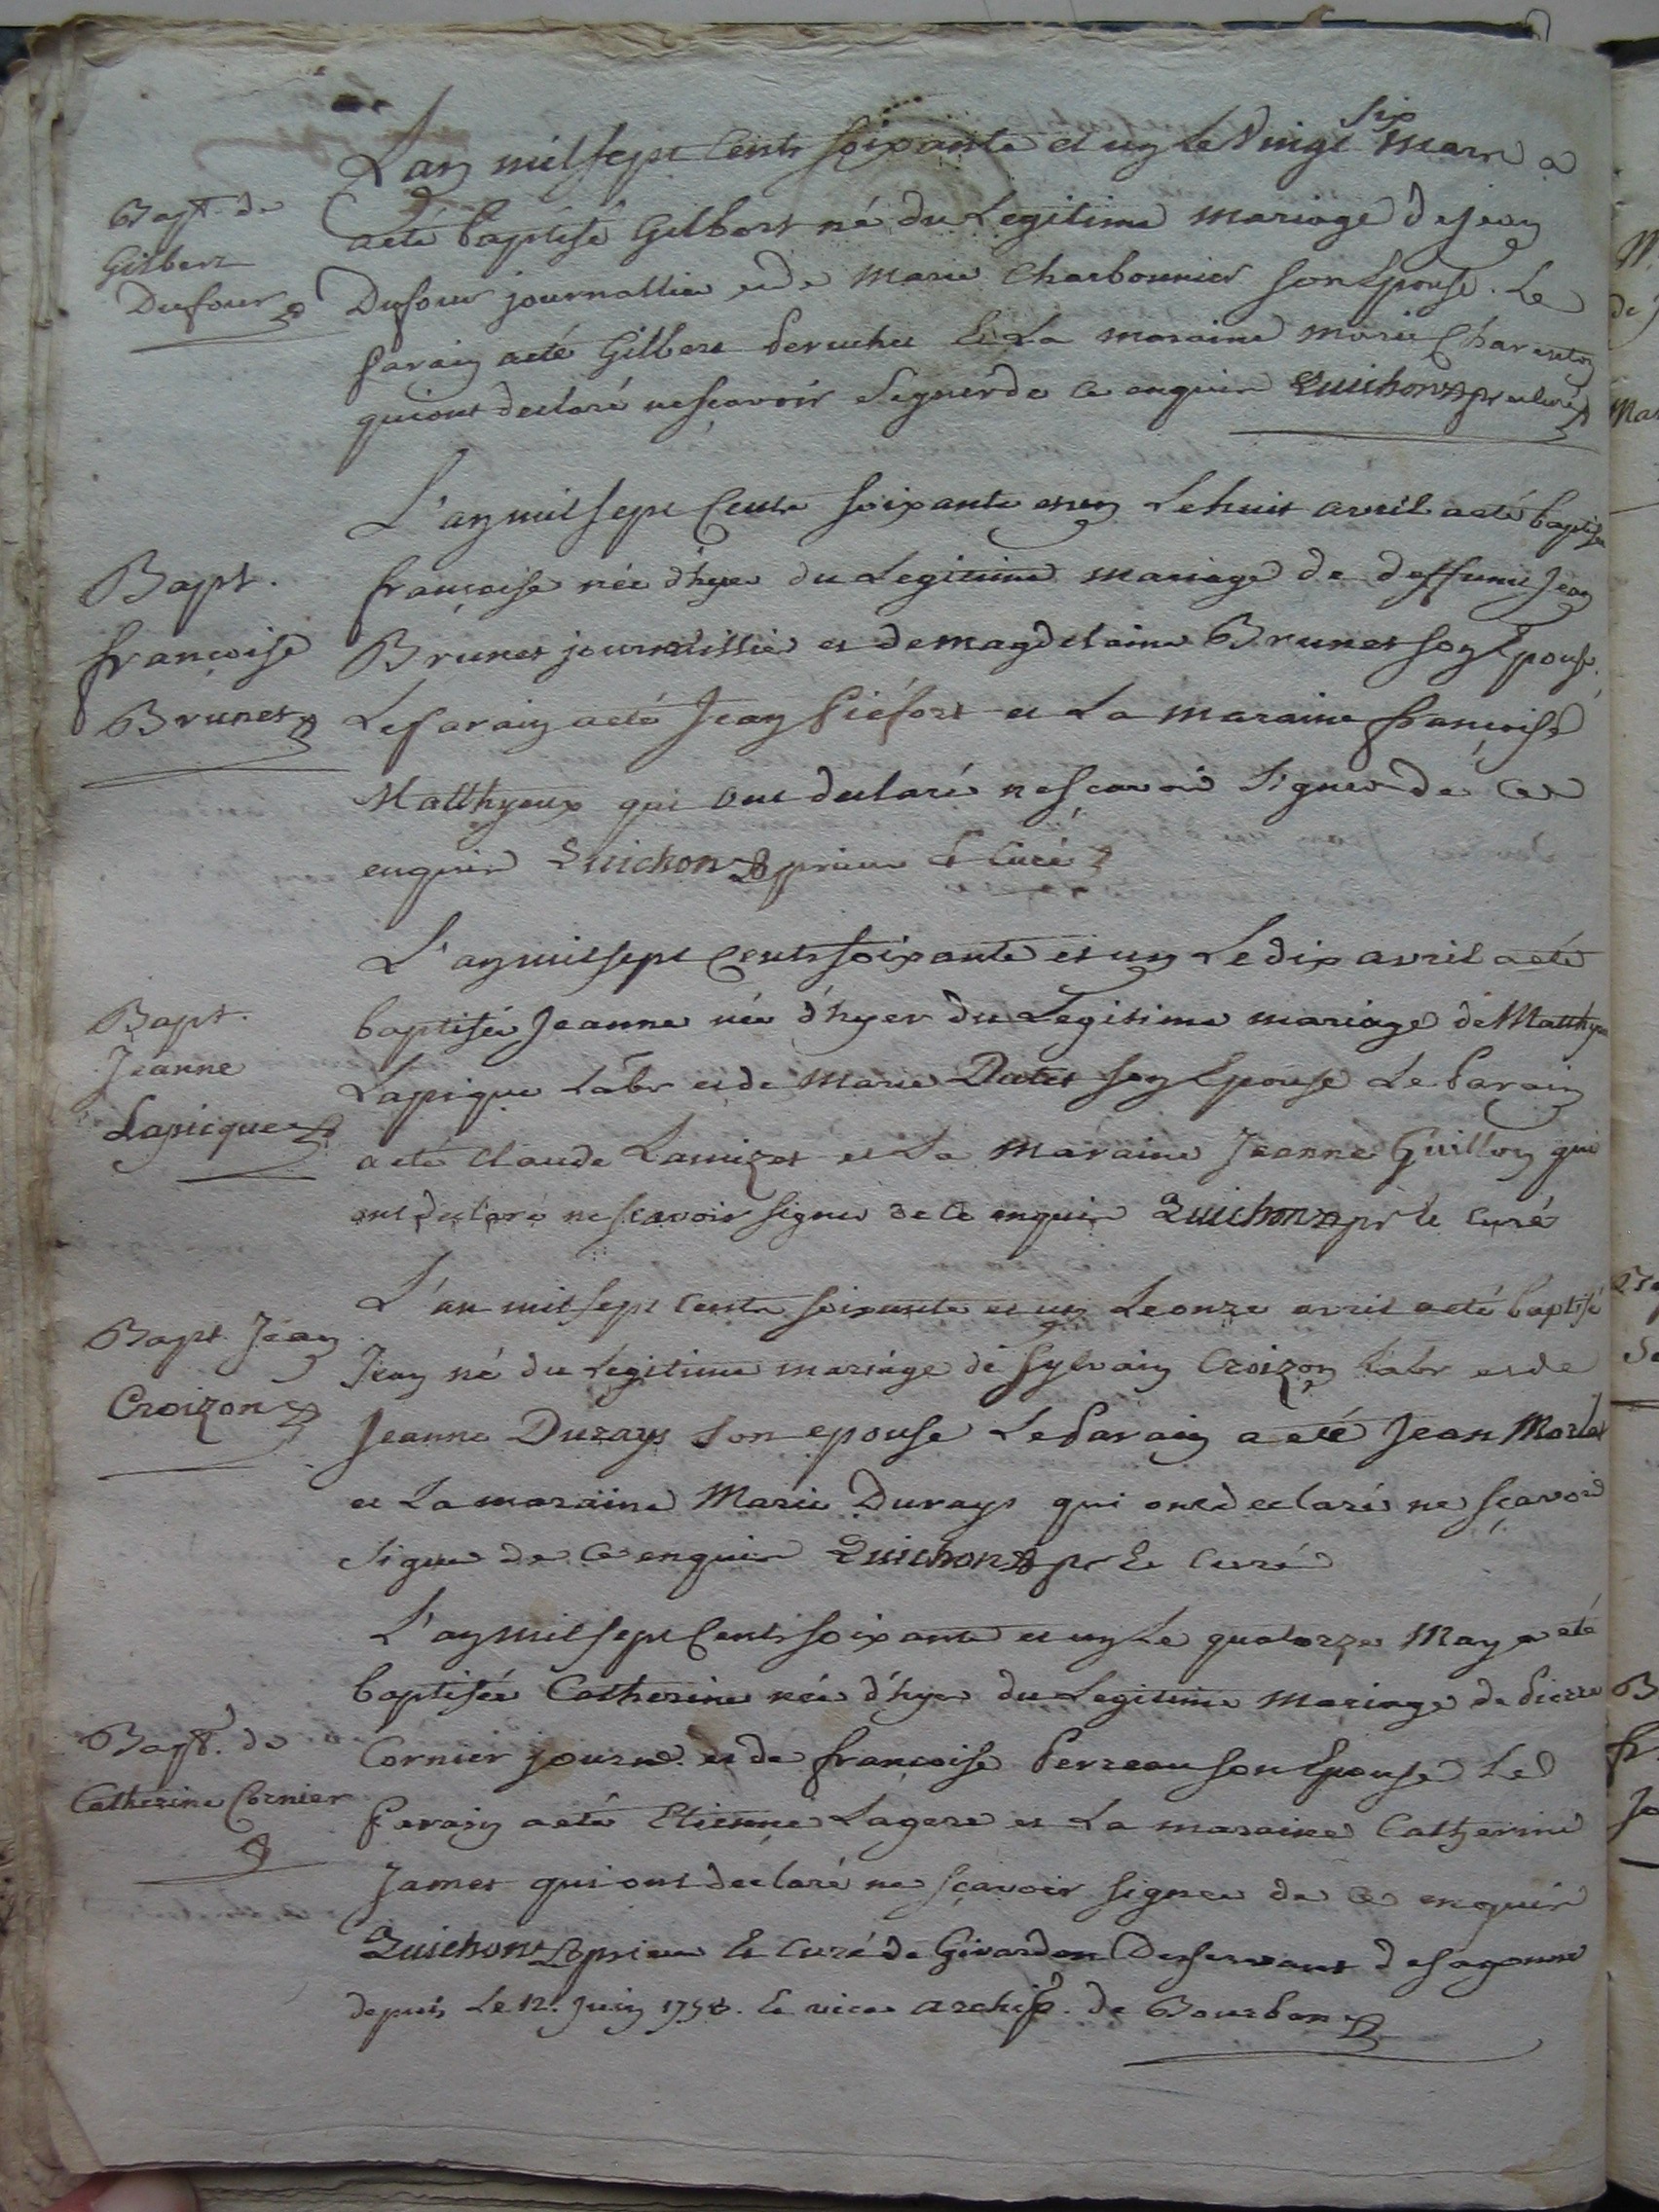 Bapt. de
Gilbert
Dufour
L'an mil sept Cents soixante et un le Vingt six Mars a
eté baptisé Gilbert né du Legitime mariage de Jean
Dufour journallier et de Marie Charbonnier son Epouse. Le
parain a eté Gilbert et La maraine Marie Charenton
qui ont declaré ne sçavoir Signer de ce enquis Quichon pr et curé
Bapt.
françoise
Brunet
L'an mil sept Cents soixante et un Le huit avril a eté baptisée
françoise née d'hyer du Legitime mariage de deffunt Jean
Brunet journallier et de magdelaine Brunet son Epouse.
Le parain a eté Jean Piéfort et La maraine françoise
Matthyeux qui ont declaré ne sçavoir Signer de ce
enquis Quichon prieur et Curé
Bapt.
Jeanne
Lapicque
L'an mil sept Cents soixante et un Le dix avril a eté
baptisée Jeanne née d'hyer du Legitime mariage de Matthyeu
Lapique Labr et de Marie Dutet son Epouse Le Parain
a eté Claude Lamizet et La Maraine Jeanne Guillon qui
ont declaré ne scavoir signer de ce enquis Quichon pr et Curé
Bapt Jean
Croizon
L'an mil sept Cents soixante et un Le onze avril a eté baptisé
Jean né du Legitime mariage de Sylvain Croizon Labr et de
Jeanne Durays son epouse Le Parain a eté Jean Morlet
et La maraine Marie Durays qui ont declaré ne sçavoir
signer de Ce enquis Quichon pr et Curé
Bapt. de
Catherine Cornier
L'an mil sept Cents soixante et un Le quatorze May a eté
baptisée Catherine née d'hyer du Legitime Mariage de Pierre
Cornier journ. et de françoise Perreau son Epouse Le
Parain a eté Etienne Lagere et La maraine Catherine
Jamet qui ont declaré ne sçavoir signer de ce enquis
Quichon prieur et Curé de Givardon Desservant de sagonne
depuis Le 12. Juin 1758. et vice archip. de Bourbon